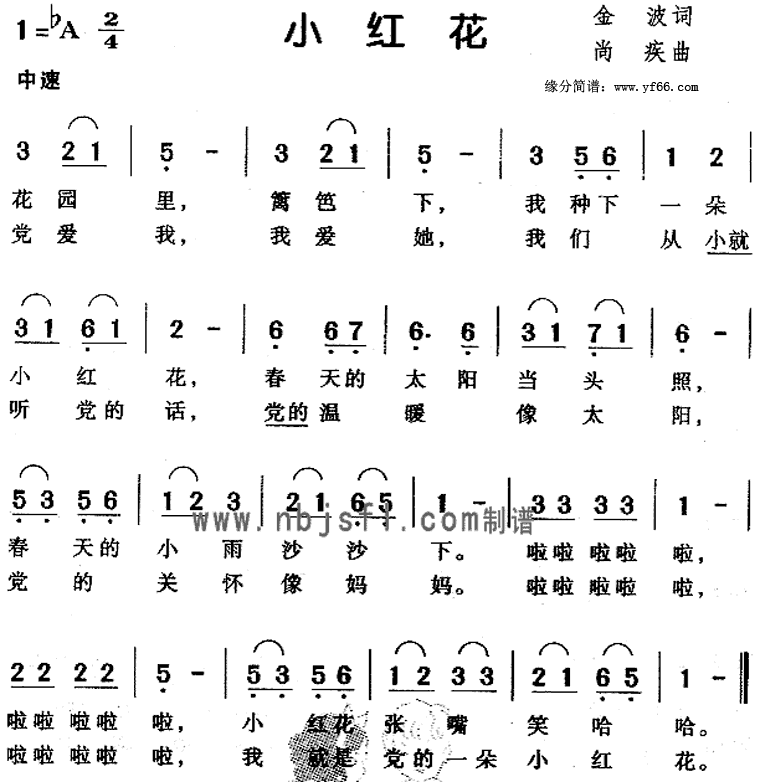 1=♭A 2/4 小红花 金波词
尚疾曲
中速 缘分简谱：www.yf66.com
3 2 1 | 5 - | 3 2 1 | 5 - | 3 5 6 | 1 2 |
花园里，篱笆下，我种下一朵
党爱我，我爱她，我们从小就
3 1 6 1 | 2 - | 6 6 7 | 6. 6 | 3 1 7 1 | 6 - |
小红花，春天的太阳当头照，
听党的话，党的温暖像太阳，
5 3 5 6 | 1 2 3 | 2 1 6 5 | 1 - | 3 3 3 3 | 1 - |
www.nbjsfl.com制谱
春天的小雨沙沙下。啦啦啦啦啦，
党的关怀像妈妈。啦啦啦啦啦，
2 2 2 2 | 5 - | 5 3 5 6 | 1 2 3 3 | 2 1 6 5 | 1 - ‖
啦啦啦啦啦，小红花张嘴笑哈哈。
啦啦啦啦啦，我就是党的一朵小红花。